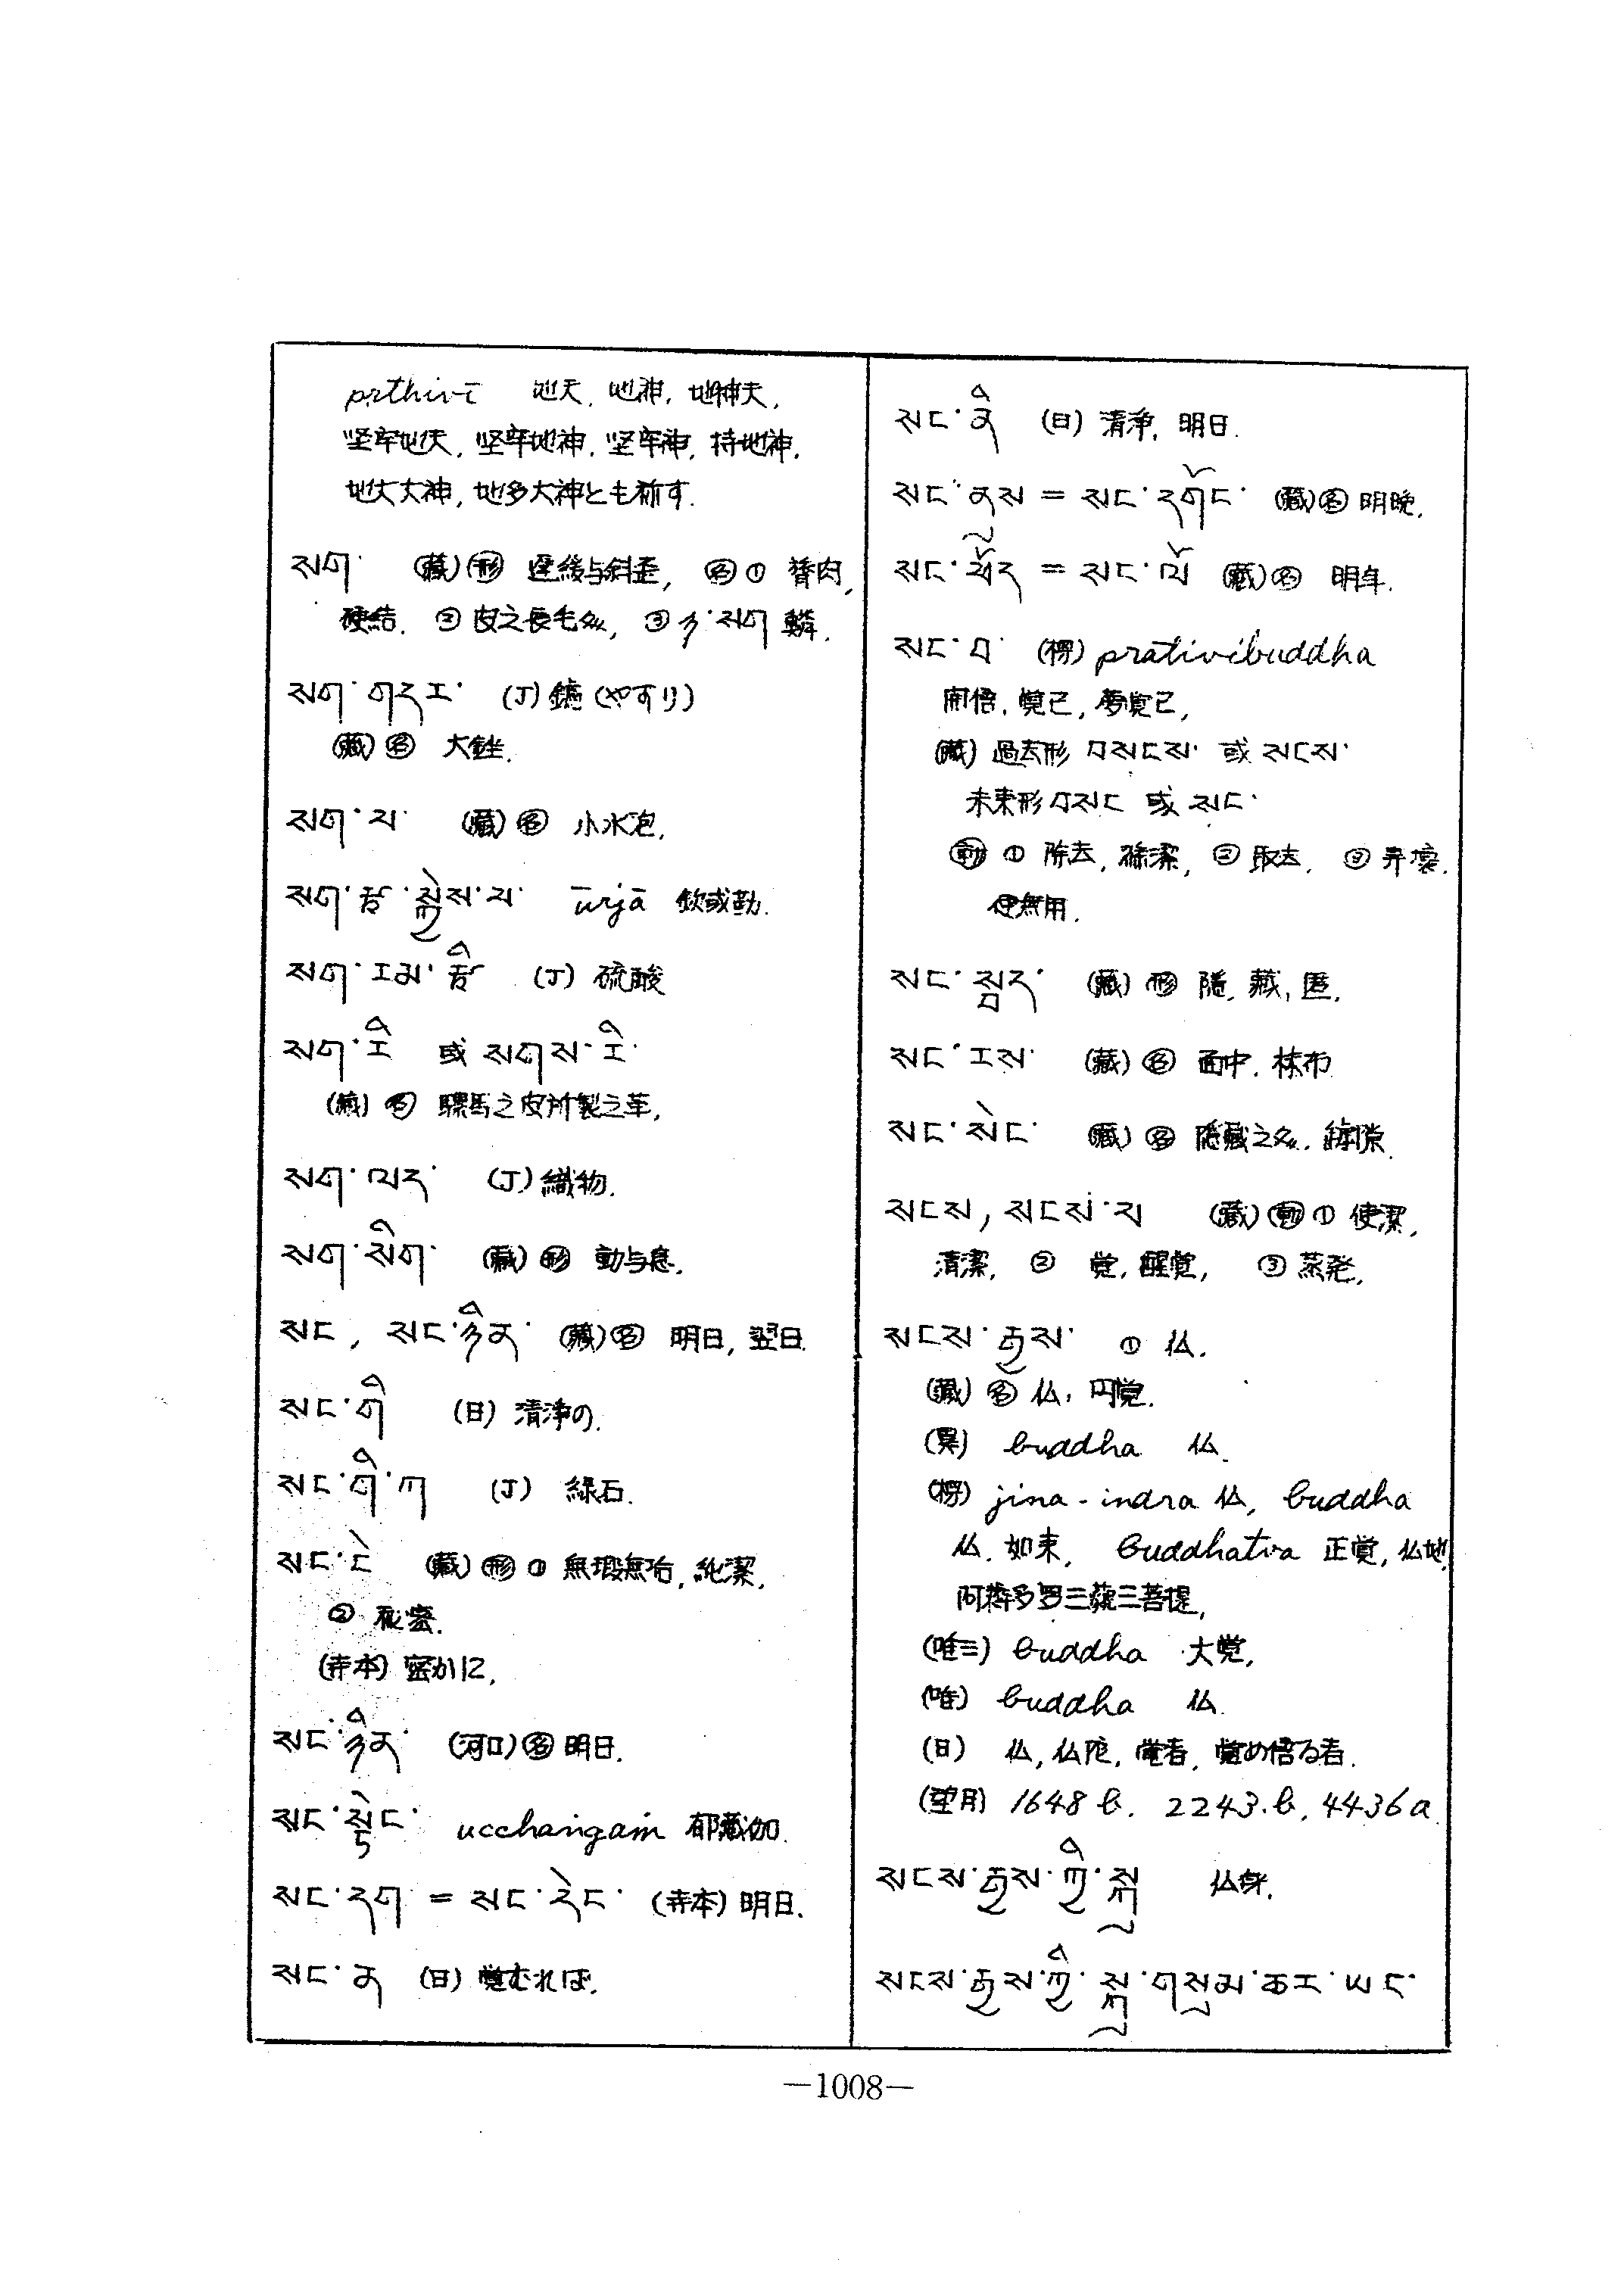 pṛthivī 地天, 地神, 地神天,
坚牢地天, 坚牢地神, 坚牢神, 持地神,
地大大神, 地多大神とも称す.
སག་ (藏)㊔ 遅緩与斜歪, ㊔① 瘠肉,
硬結. ② 皮之長毛処, ③ ཉ་སག 鱗.
སག་གདར་ (J) 鑢 (やすり)
(藏)㊔ 大銼.
སག་པ་ (藏)㊔ 小水泡,
ūrjā 欽或勒.
(J) 硫酸
སག་རི 或 སགས་རི་
(藏)㊔ 騾馬之皮所製之革,
སག་ལད་ (J) 織物.
སག་སིག་ (藏)㊔ 動与息.
སང, སང་ཉིན་ (藏)㊔ 明日, 翌日.
སང་གི (日) 清浄の.
སང་གི་ཀ (J) 緑石.
སང་ངེ (藏)㊔① 無瑕無垢, 純潔,
② 秘密.
(寺本) 密かに,
སང་ཉིན་ (河口)㊔ 明日.
སང་སྟེང་ ucchaṅgaṁ 郁蔵伽.
སང་དག = སང་དེང་ (寺本) 明日.
སང་ན (日) 覚むれば.
སང་ནི (日) 清浄, 明日.
སང་ནུས = སང་དགོང་ (藏)㊔ 明晩.
སང་ཕོད = སང་ལོ (藏)㊔ 明年.
སང་བ་ (楞) prativibuddha
開悟, 覚已, 夢覚已,
(藏) 過去形 བསངས་ 或 སངས་
未来形 བསང 或 སང་
㊔① 除去, 滌潔, ② 取去, ③ 弄壊,
使無用.
སང་སྦད་ (藏)㊔ 隠, 藏, 匿.
སང་རས་ (藏)㊔ 面巾, 抹布
སང་སེང་ (藏)㊔ 隠藏之処, 罅隙.
སངས, སངས་པ (藏)㊔① 使潔,
清潔, ② 覚, 醒覚, ③ 蒸発,
སངས་རྒྱས་ ① 仏.
(藏)㊔ 仏, 円覚.
(異) buddha 仏.
(楞) jina-indra 仏, buddha
仏, 如来, Buddhatva 正覚, 仏地,
阿耨多罗三藐三菩提,
(唯三) buddha 大覚,
(唯) buddha 仏.
(日) 仏, 仏陀, 覚者, 覚め悟る者.
(望月) 1648 b. 2243.b, 4436a.
སངས་རྒྱས་ཀྱི་སྐུ 仏身.
སངས་རྒྱས་ཀྱི་སྐུ་གསུམ་ཆར་ཡང་
—1008—